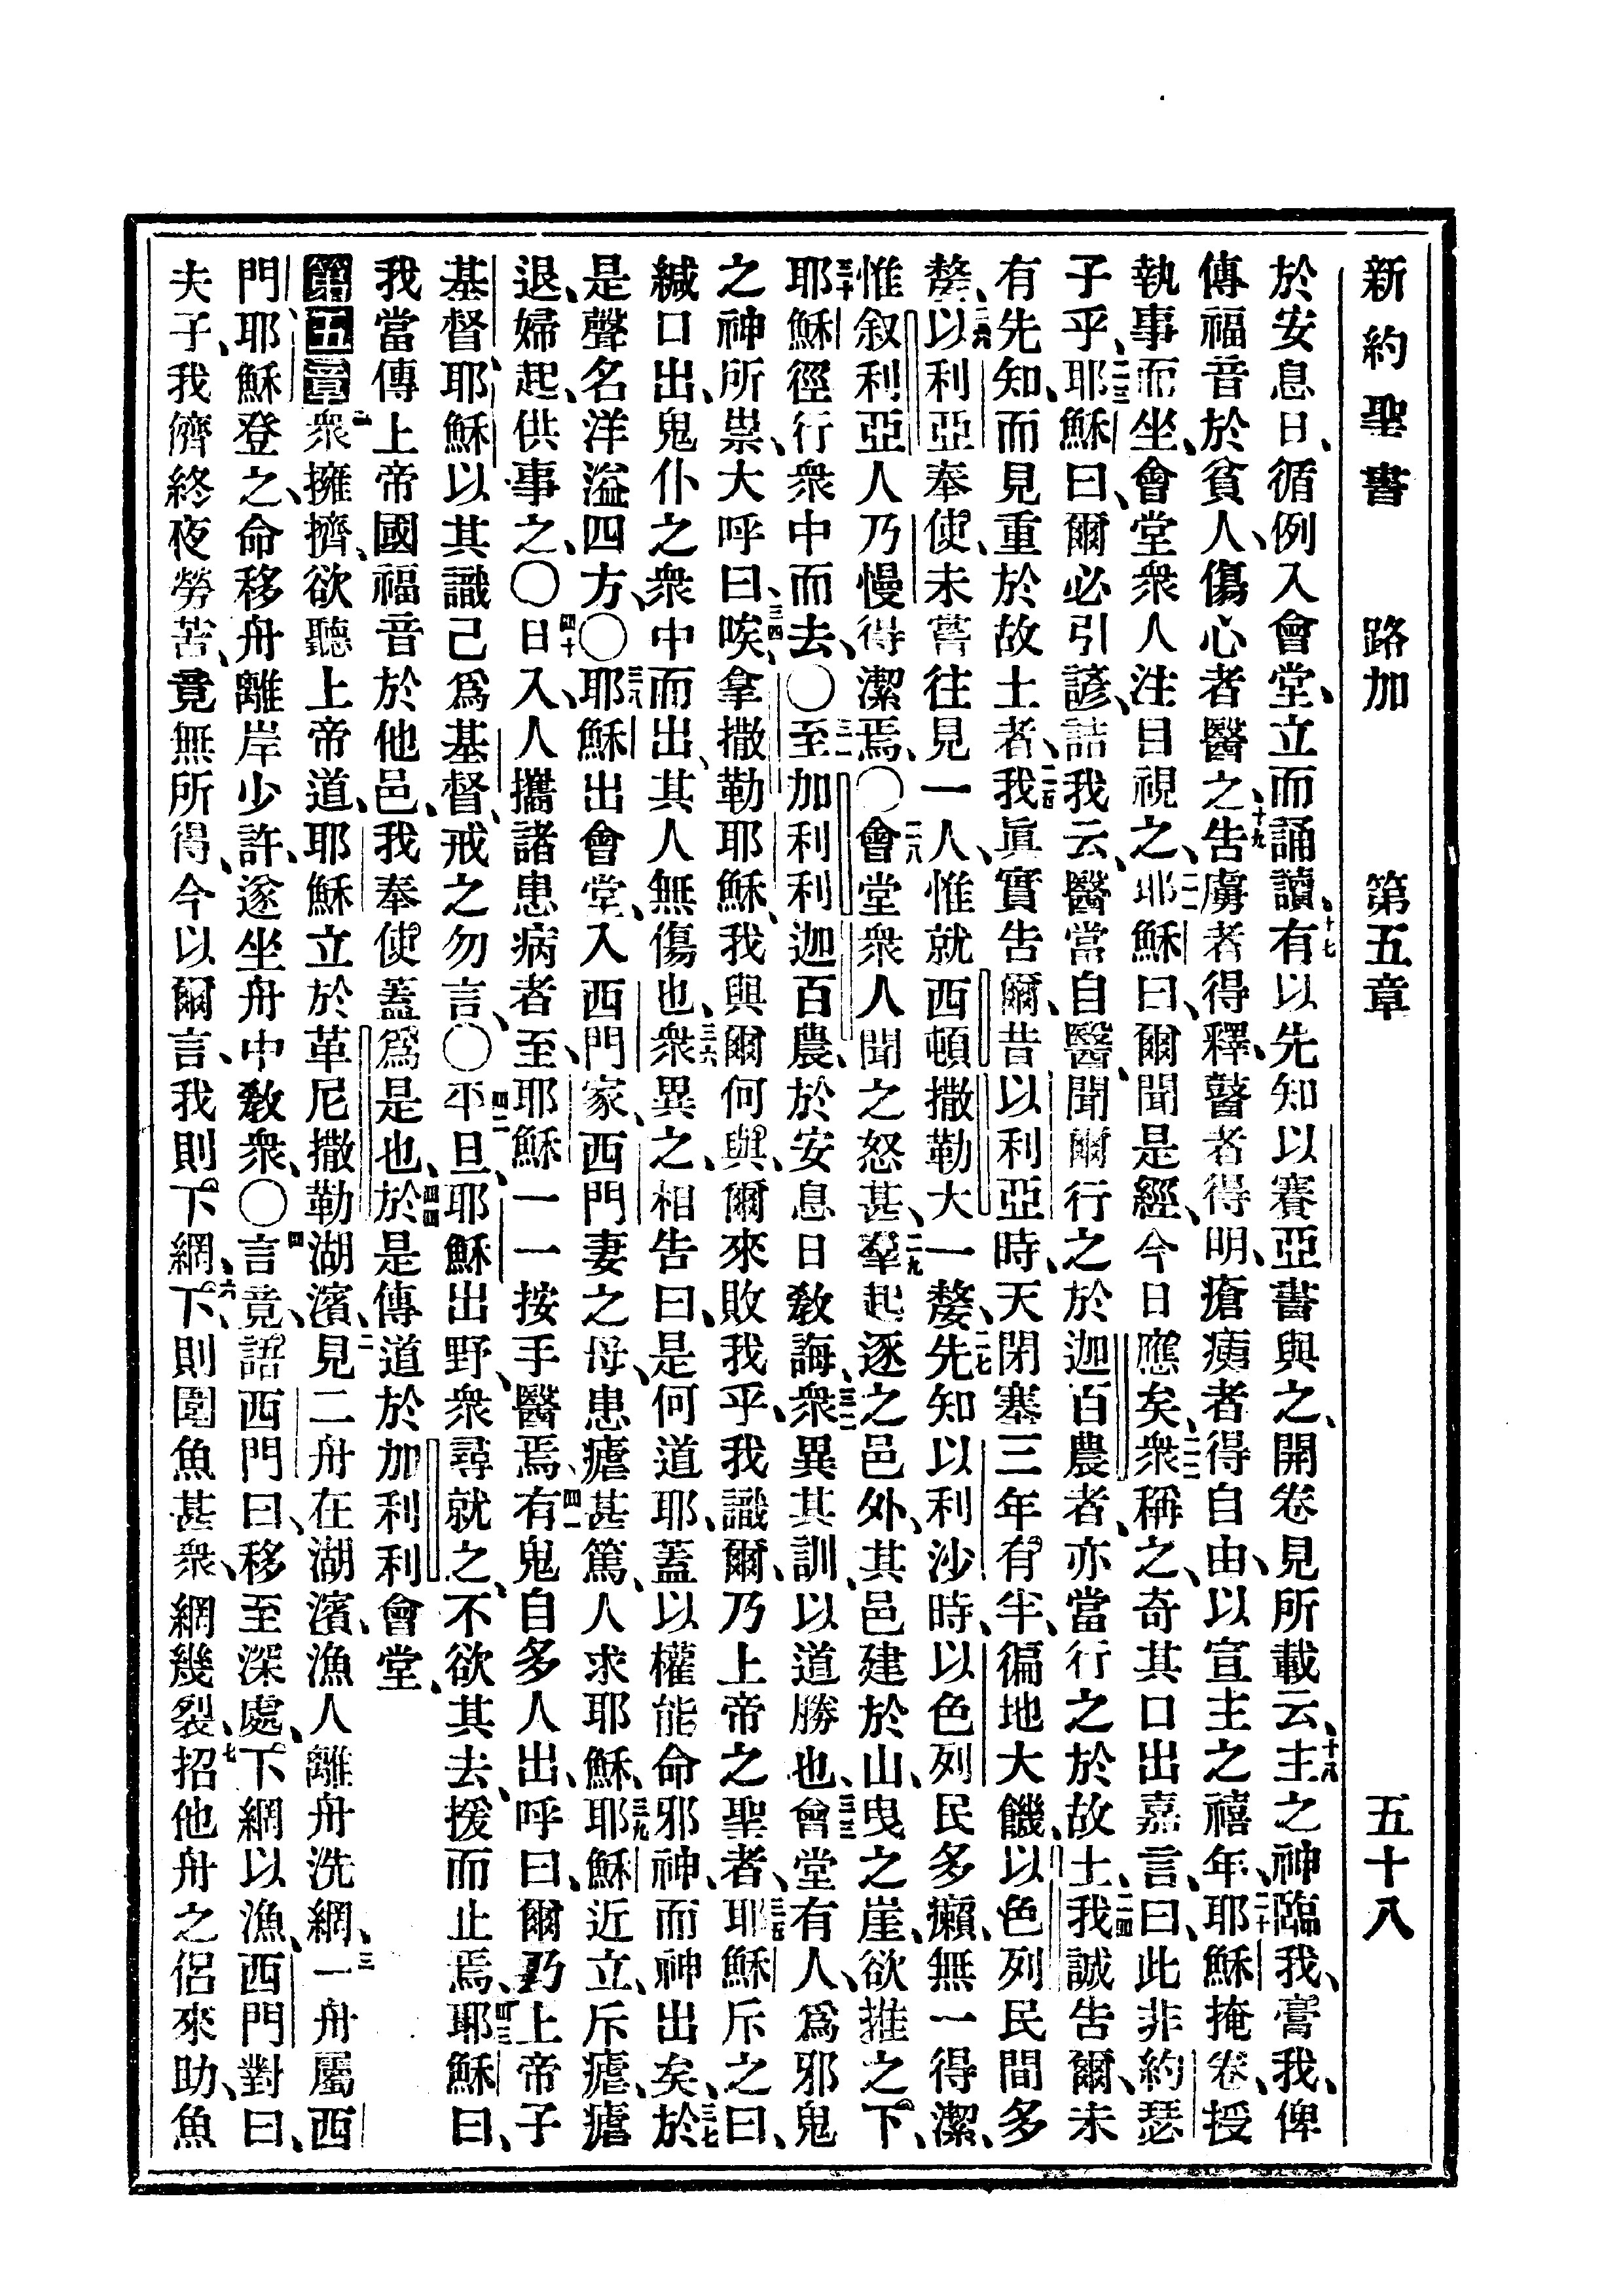 新約聖書 路加 第五章 五十八
於安息日、循例入會堂、立而誦讀、十七有以先知以賽亞書與之、開卷見所載云、十八主之神臨我、膏我、俾
傳福音於貧人、傷心者醫之、十九吿虜者得釋、瞽者得明、瘡痍者得自由、以宣主之禧年、二十耶穌掩卷、授
執事而坐、會堂衆人注目視之、二一耶穌曰、爾聞是經、今日應矣、二二衆稱之、奇其口出嘉言、曰、此非約瑟
子乎、二三耶穌曰、爾必引諺、詰我云、醫當自醫、聞爾行之於迦百農者、亦當行之於故土、二四我誠吿爾、未
有先知、而見重於故土者、二五我眞實吿爾、昔以利亞時、天閉塞三年有半、徧地大饑、以色列民間多
嫠、二六以利亞奉使、未嘗往見一人、惟就西頓撒勒大一嫠、二七先知以利沙時、以色列民多癩、無一得潔、
惟叙利亞人乃慢得潔焉、〇二八會堂衆人聞之怒甚、二九羣起逐之邑外、其邑建於山、曳之崖、欲推之下、
三十耶穌徑行衆中而去、〇三一至加利利迦百農、於安息日敎誨、三二衆異其訓、以道勝也、三三會堂有人、爲邪鬼
之神所祟、大呼曰、三四唉、拿撒勒耶穌、我與爾何與、爾來敗我乎、我識爾、乃上帝之聖者、三五耶穌斥之曰、
緘口出、鬼仆之衆中而出、其人無傷也、三六衆異之、相吿曰、是何道耶、蓋以權能命邪神、而神出矣、三七於
是聲名洋溢四方、〇三八耶穌出會堂、入西門家、西門妻之母、患瘧甚篤、人求耶穌、三九耶穌近立、斥瘧、瘧
退、婦起、供事之、〇四十日入、人攜諸患病者、至耶穌、一一按手醫焉、四一有鬼自多人出、呼曰、爾乃上帝子
基督、耶穌以其識己爲基督、戒之勿言、〇四二平旦、耶穌出野、衆尋就之、不欲其去、援而止焉、四三耶穌曰、
我當傳上帝國福音於他邑、我奉使蓋爲是也、四四於是傳道於加利利會堂、
第五章 一衆擁擠、欲聽上帝道、耶穌立於革尼撒勒湖濱、二見二舟在湖濱、漁人離舟洗網、三一舟屬西
門、耶穌登之、命移舟離岸少許、遂坐舟中敎衆、〇四言竟、語西門曰、移至深處、下網以漁、西門對曰、
夫子、我儕終夜勞苦、竟無所得、今以爾言、我則下網、六下、則圍魚甚衆、網幾裂、七招他舟之侶來助、魚